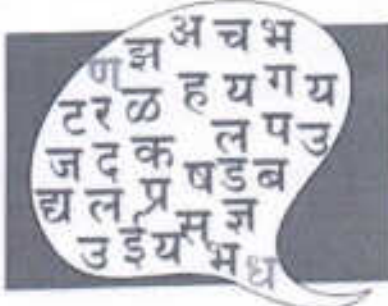 अ च भ
ण झ
ह य ग य
ट र ळ
ल प उ
ज द क
ष ड ब
द्य ल प्र
स ज्ञ
उ ई य
भ ध